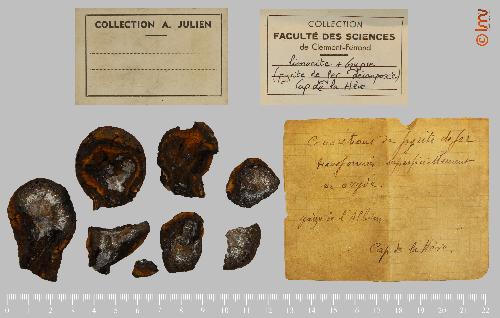 COLLECTION A. JULIEN
COLLECTION
FACULTÉ DES SCIENCES
de Clermont-Ferrand
limonite + Gypse
(pyrite de fer décomposée)
Cap de la Hève
Concrétions de pyrite de fer
transformées superficiellement
en
de l'Albien
Cap de la Hève.
lmv
0 1 2 3 4 5 6 7 8 9 10 11 12 13 14 15 16 17 18 19 20 21 22